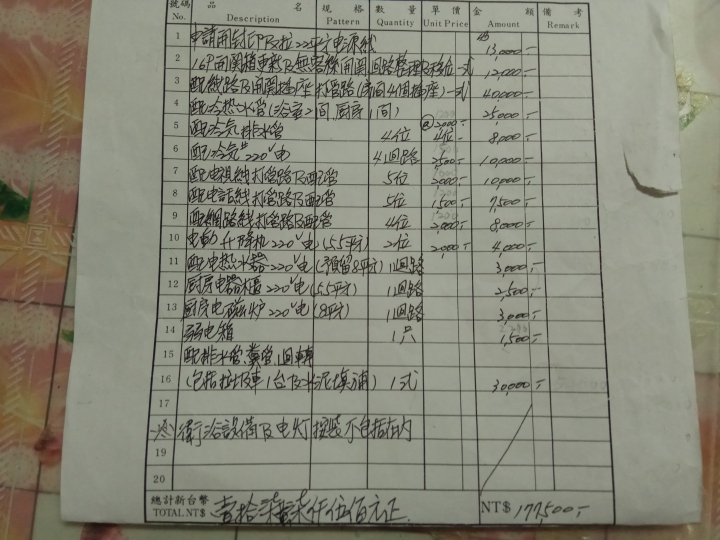 號碼 品名 規格 數量 單價 金額 備考
No. Description Pattern Quantity Unit Price Amount Remark
1 申請用封印及拉22平方電源線 13,000-
2 16P開關箱更新及無熔絲開關回路整理及移位一式 12,000-
3 配線路及開關插座打管路(房間4個插座)一式 40,000-
4 配冷热水管(浴室2間,厨房1間) 25,000-
5 配冷気排水管 4位 @2000- 8,000-
6 配冷気220V电 4回路 2500- 10,000-
7 配电視线打管路及配管 5位 2000- 10,000-
8 配电話线打管路及配管 5位 1500- 7,500-
9 配網路线打管路及配管 4位 2,000- 8,000-
10 电動升降机220V电(5.5平方) 2位 2,000- 4,000-
11 配电热水器220V电(預留8平方) 1回路 3,000-
12 厨房电器櫃220V电(5.5平方) 1回路 2,500-
13 厨房电磁炉220V电(8平方) 1回路 3,000-
14 弱电箱 1只 1,500-
15 配排水管,糞管,回轉
16 (包括垃圾車1台及水泥填補) 1式 30,000-
17
衛浴設備及电灯按裝不包括在內
19
20
總計新台幣
TOTAL.NT$ 壹拾柒萬柒仟伍佰元正. NT$ 177,500-